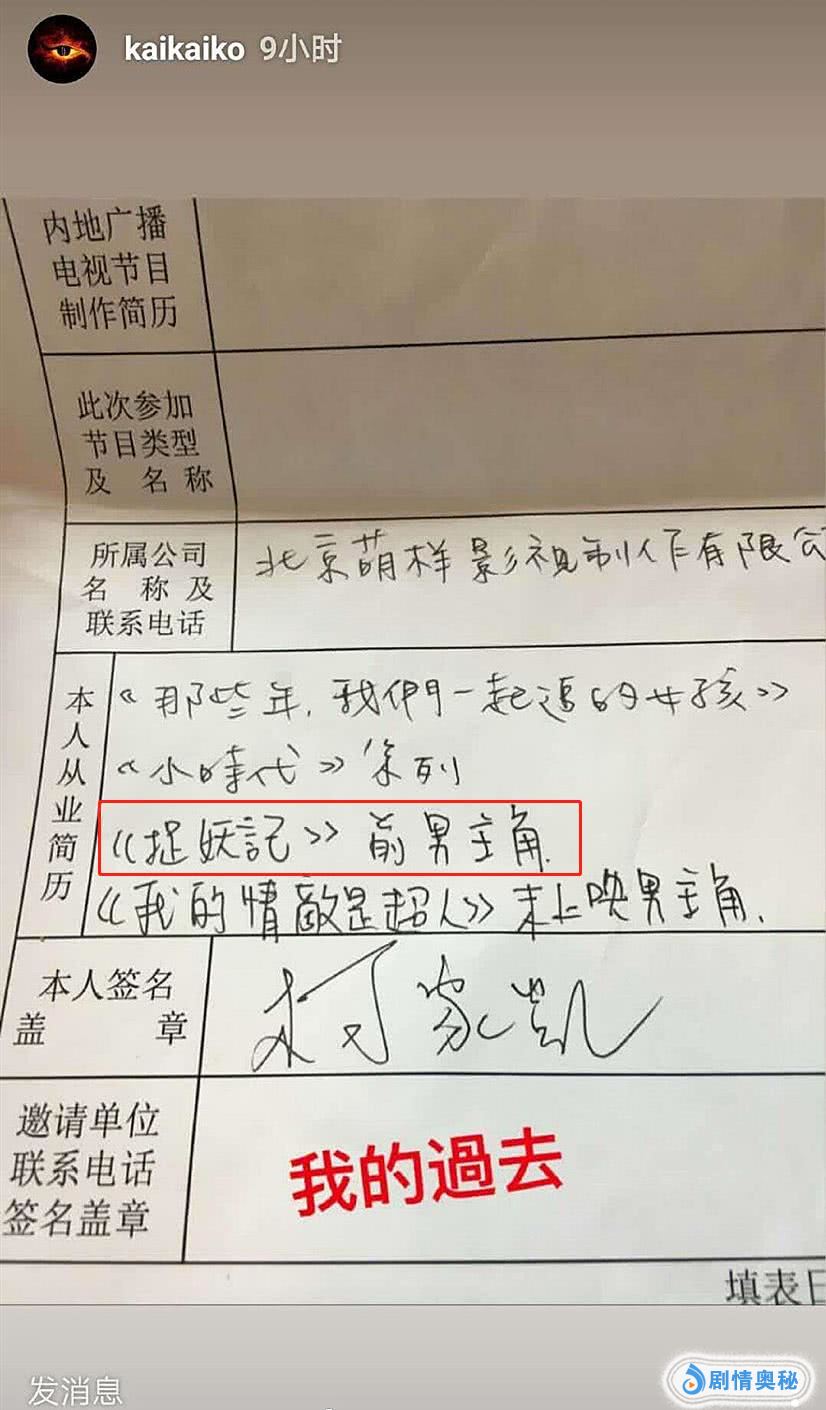 kaikaiko 9小时
内地广播
电视节目
制作简历
此次参加
节目类型
及 名 称
所属公司
名 称 及
联系电话
北京萌样影视制作有限公
本人从业简历
《那些年,我們一起追的女孩》
《小時代》系列
《捉妖記》前男主角.
《我的情敵是超人》未上映男主角.
本人签名
盖 章
柯家凱
邀请单位
联系电话
签名盖章
我的過去
填表日
发消息
剧情奥秘